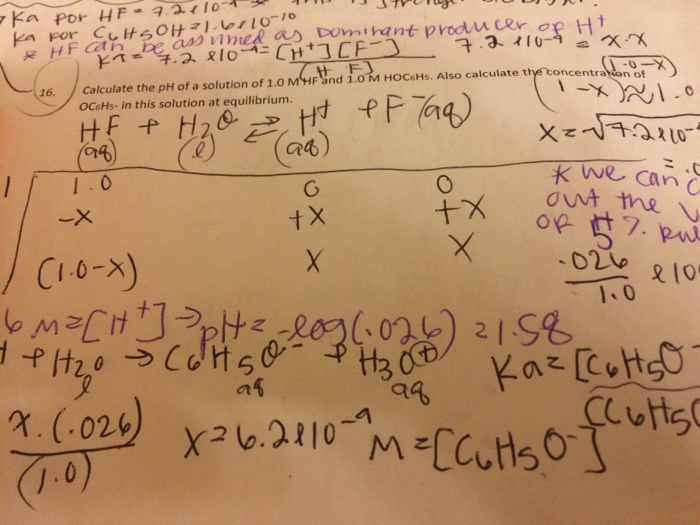 Ka for HF = 7.2 x 10⁻⁴
Ka for C6H5OH = 1.6 x 10⁻¹⁰
* HF can be assumed as Dominant producer of H⁺
Ka = 7.2 x 10⁻⁴ = [H⁺][F⁻] 7.2 x 10⁻⁴ = x·x
[HF] (1.0-x)
16. Calculate the pH of a solution of 1.0 M HF and 1.0 M HOC6H5. Also calculate the concentration of
OC6H5- in this solution at equilibrium.
(1-x) ≈ 1.0
HF + H2O ⇌ H⁺ + F⁻(aq)
(aq) (l) (aq)
x = √7.2x10⁻
1.0 0 0 * we can
-x +x +x out the
(1.0-x) x x of 5%
.026 x 10
1.0
6 M = [H⁺] → pH = -log(.026) = 1.58
+ H2O → C6H5O⁻ + H3O⁺ Ka = [C6H5O⁻
l aq aq [C6H5O
x·(.026) x = 6.2 x 10⁻⁹ M = [C6H5O⁻]
(1.0)